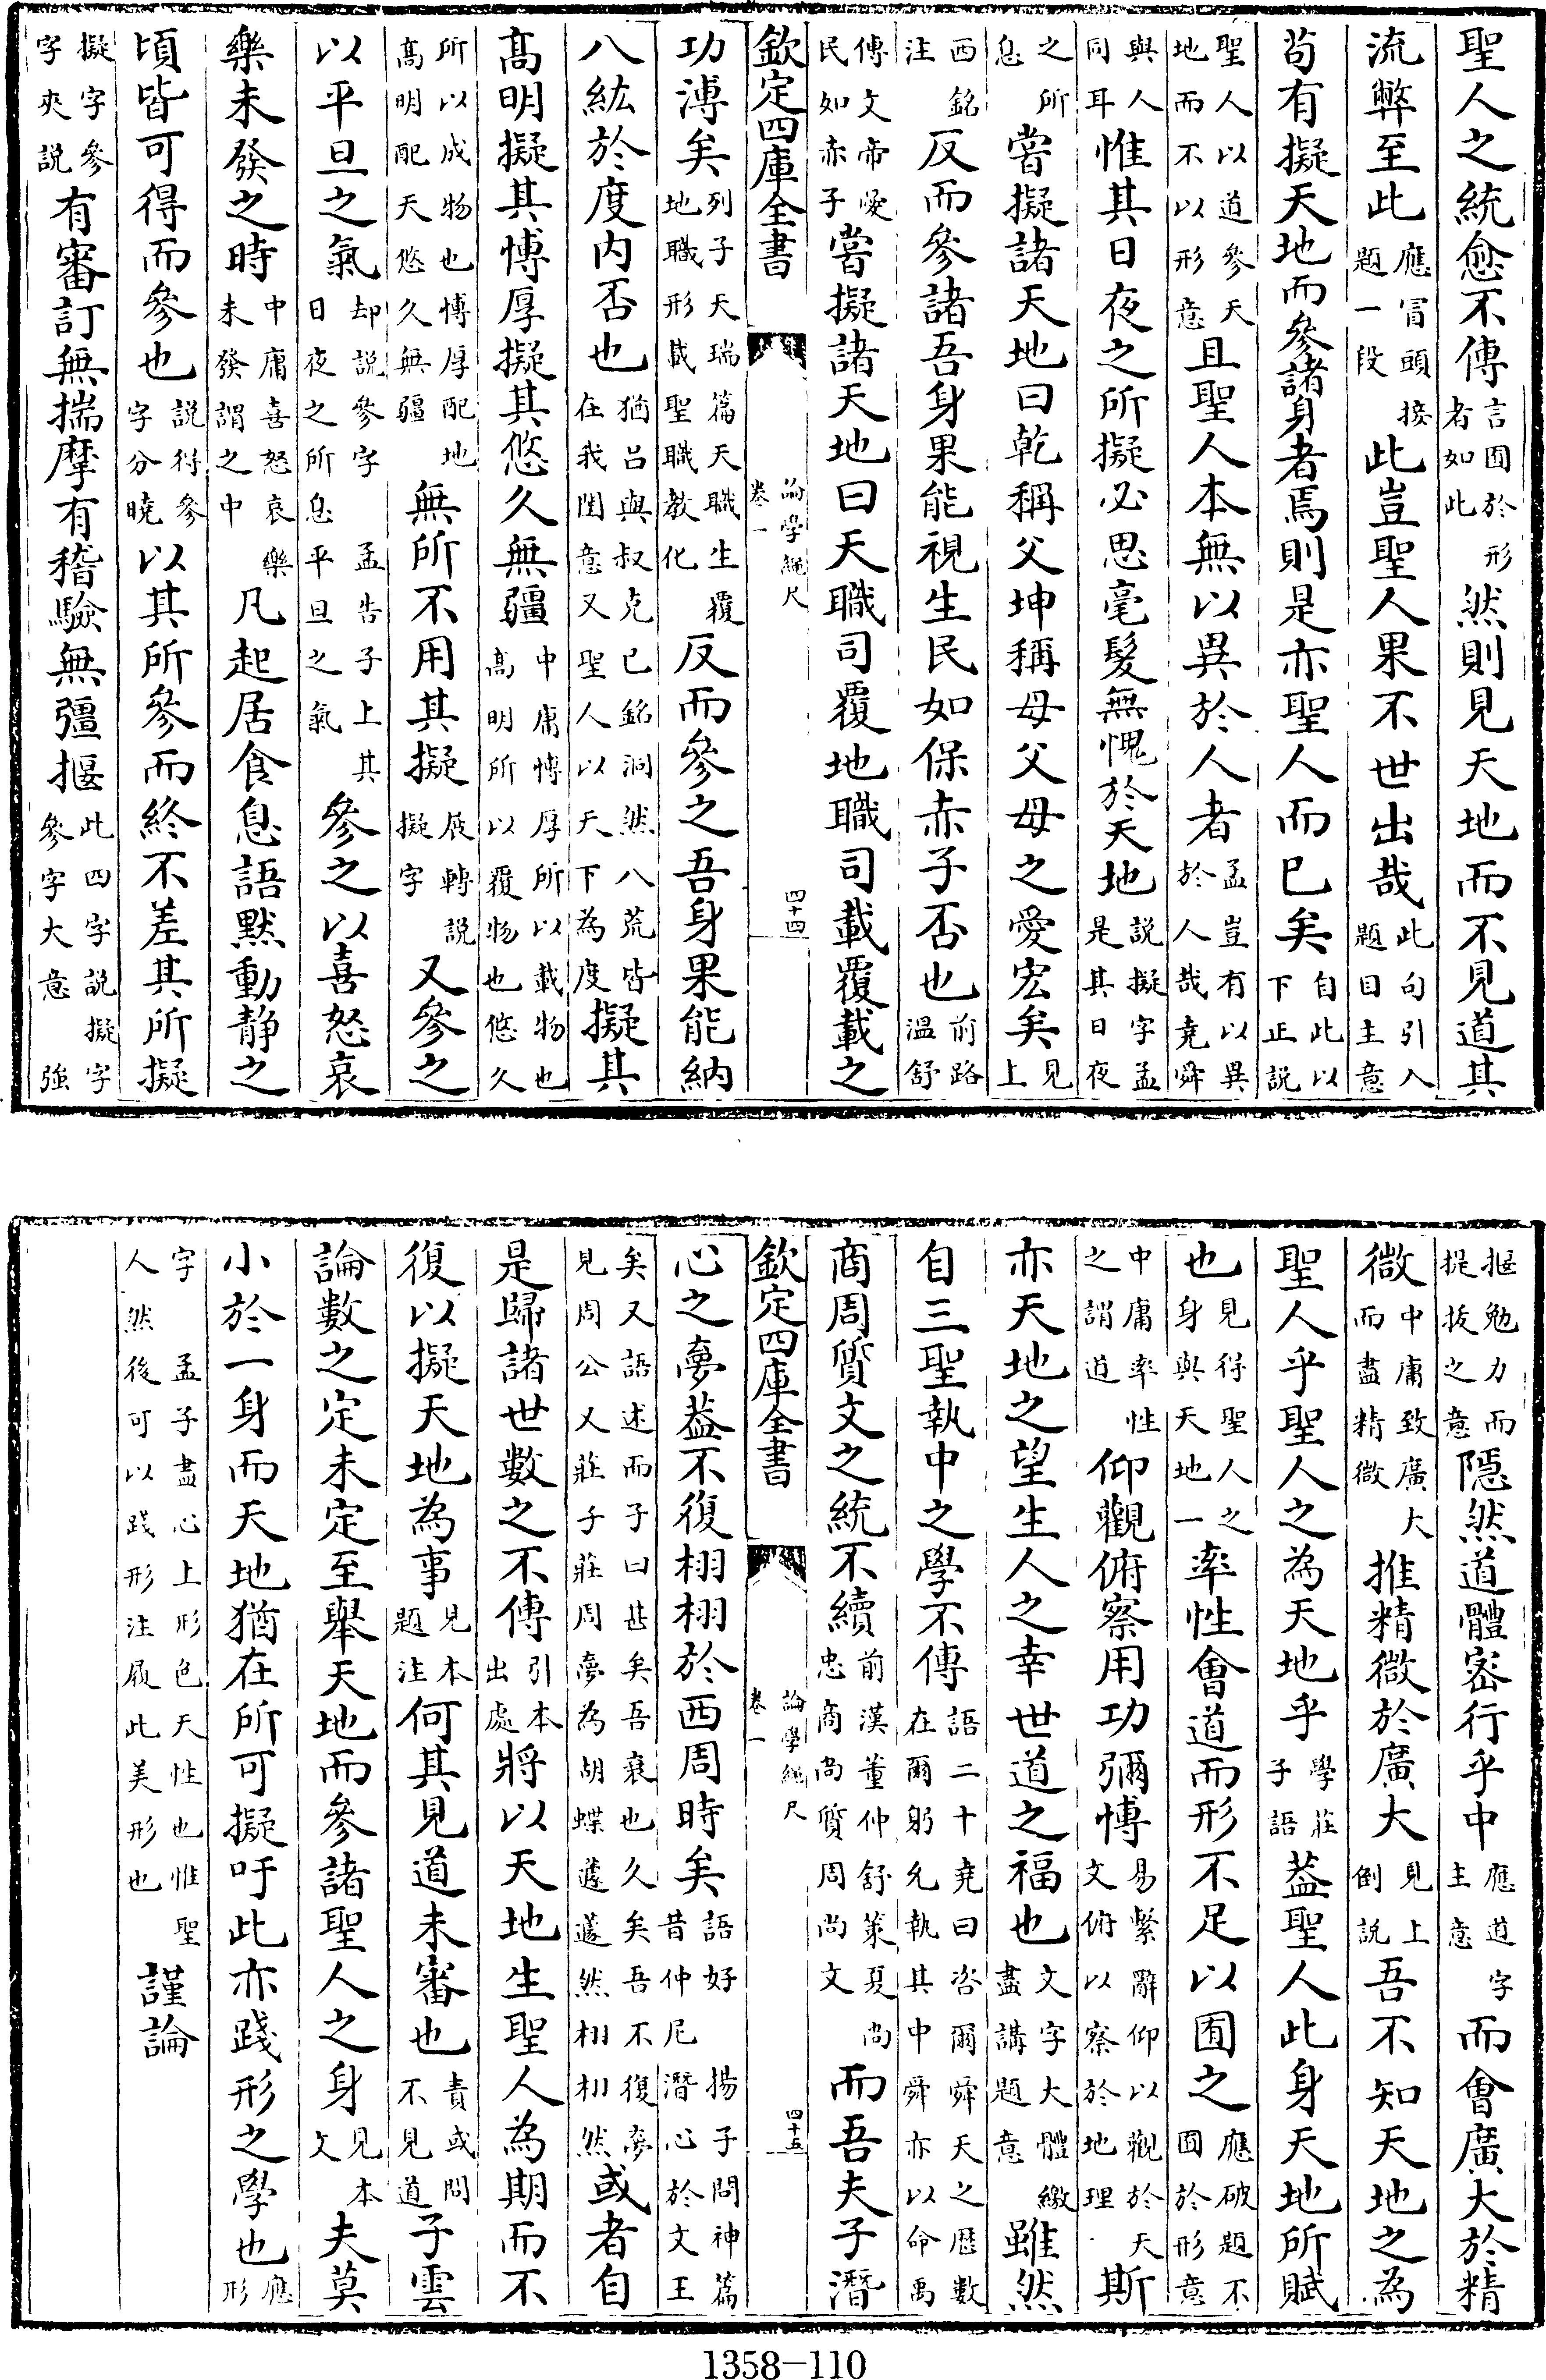 聖人之統愈不傳言囿於形者如此然則見天地而不見道其
流弊至此應冒頭接題一段此豈聖人果不世出哉此句引入題目主意
苟有擬天地而參諸身者焉則是亦聖人而已矣自此以下正説
聖人以道參天地而不以形意且聖人本無以異於人者孟豈有以異於人哉堯舜
與人同耳惟其日夜之所擬必思毫髮無愧於天地説擬字孟是其日夜
之所息嘗擬諸天地曰乾稱父坤稱母父母之愛宏矣見上
西銘注反而參諸吾身果能視生民如保赤子否也前路溫舒
傳文帝愛民如赤子嘗擬諸天地曰天職司覆地職司載覆載之
欽定四庫全書 論學繩尺卷一 四十四
功溥矣列子天瑞篇天職生覆地職形載聖職教化反而參之吾身果能納
八紘於度内否也猶呂與叔克已銘洞然八荒皆在我闥意又聖人以天下為度擬其
髙明擬其博厚擬其悠久無疆中庸博厚所以載物也髙明所以覆物也悠久
所以成物也博厚配地髙明配天悠久無疆無所不用其擬展轉説擬字又參之
以平旦之氣却説參字孟告子上其日夜之所息平旦之氣參之以喜怒哀
樂未發之時中庸喜怒哀樂未發謂之中凡起居食息語默動静之
頃皆可得而參也説得參字分曉以其所參而終不差其所擬
擬字參字夾説有審訂無揣摩有稽驗無彊揠此四字説擬字參字大意強
揠勉力而提拔之意隱然道體宻行乎中應道字主意而會廣大於精
微中庸致廣大而盡精微推精微於廣大見上倒説吾不知天地之為
聖人乎聖人之為天地乎學莊子語葢聖人此身天地所賦
也見得聖人之身與天地一率性會道而形不足以囿之應破題不囿於形意
中庸率性之謂道仰觀俯察用功彌博易繫辭仰以觀於天文俯以察於地理斯
亦天地之望生人之幸世道之福也文字大體繳盡講題意雖然
自三聖執中之學不傳語二十堯曰咨爾舜天之厯數在爾躬允執其中舜亦以命禹
商周質文之統不續前漢董仲舒策夏尚忠商尚質周尚文而吾夫子潛
欽定四庫全書 論學繩尺卷一 四十五
心之夢葢不復栩栩於西周時矣語好揚子問神篇昔仲尼潛心於文王
矣又語述而子曰甚矣吾衰也久矣吾不復夢見周公又莊子莊周夢為胡蝶蘧蘧然栩栩然或者自
是歸諸世數之不傳引本出處將以天地生聖人為期而不
復以擬天地為事見本題注何其見道未審也責或問不見道子雲
論數之定未定至舉天地而參諸聖人之身見本文夫莫
小於一身而天地猶在所可擬吁此亦踐形之學也應形
字孟子盡心上形色天性也惟聖人然後可以踐形注履此美形也謹論
1358-110